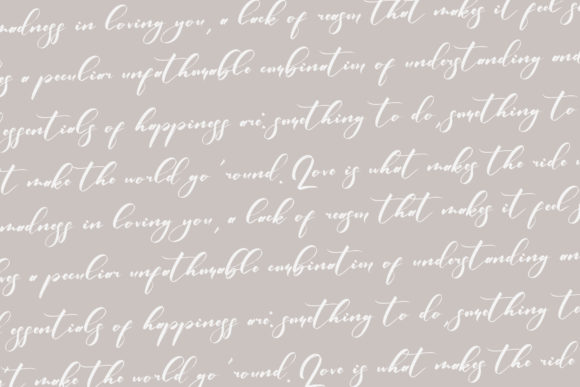 madness in loving you, a lack of reason that makes it feel so
a peculiar unfathomable combination of understanding and
essentials of happiness are: something to do, something to
make the world go 'round. Love is what makes the ride
madness in loving you, a lack of reason that makes it feel
a peculiar unfathomable combination of understanding an
essentials of happiness are: something to do, something to
make the world go 'round. Love is what makes the ride